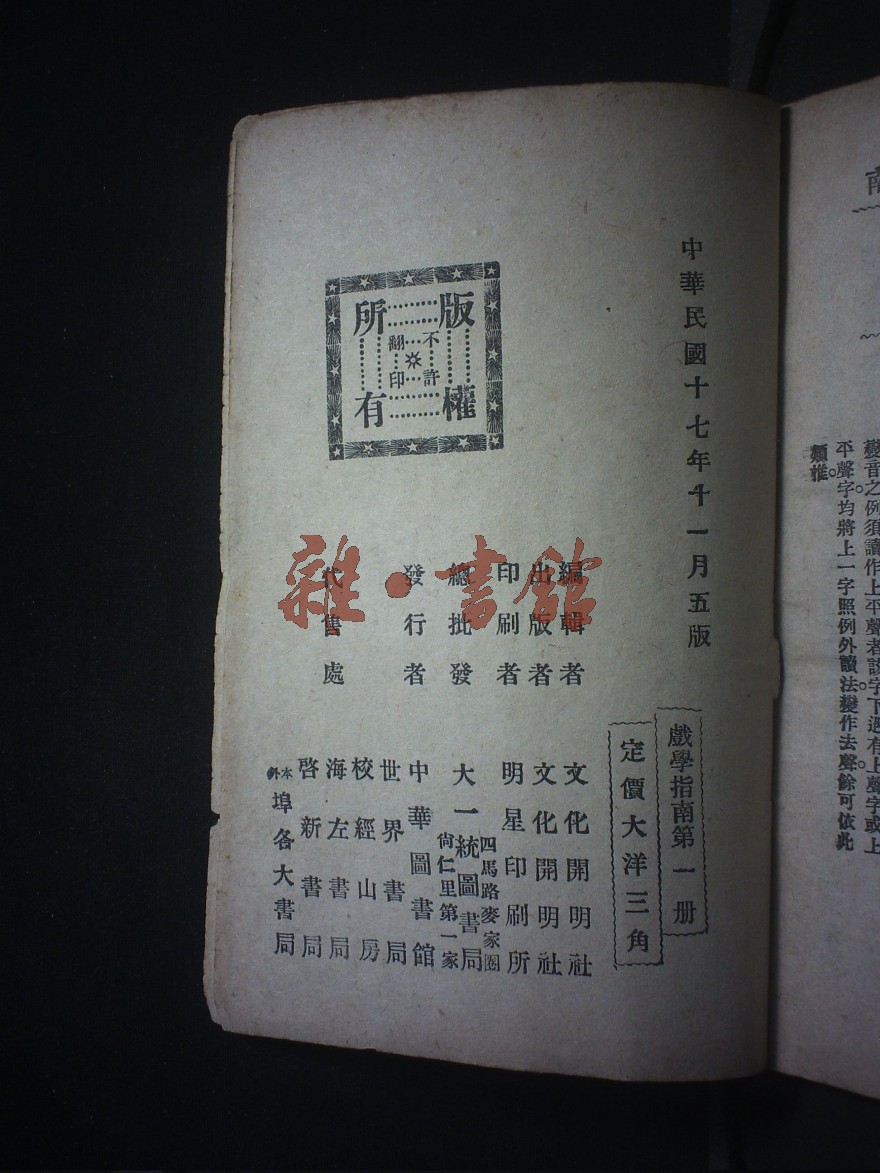 南
變音之例須讀作上平聲者該字下遇有上聲字或上
平聲字均將上一字照例外讀法變作去聲餘可依此
類推
中華民國十七年十一月五版
戲學指南第一册
定價大洋三角
編輯者 文化開明社
出版者 文化開明社
印刷者 明星印刷所
總批發 大一統圖書局 四馬路麥家圈 尙仁里第一家
發行者 中華圖書館
世界書局
校經山房
代售處 海左書局
啓新書局
本外埠各大書局
版權所有
不許翻印
雜·書館